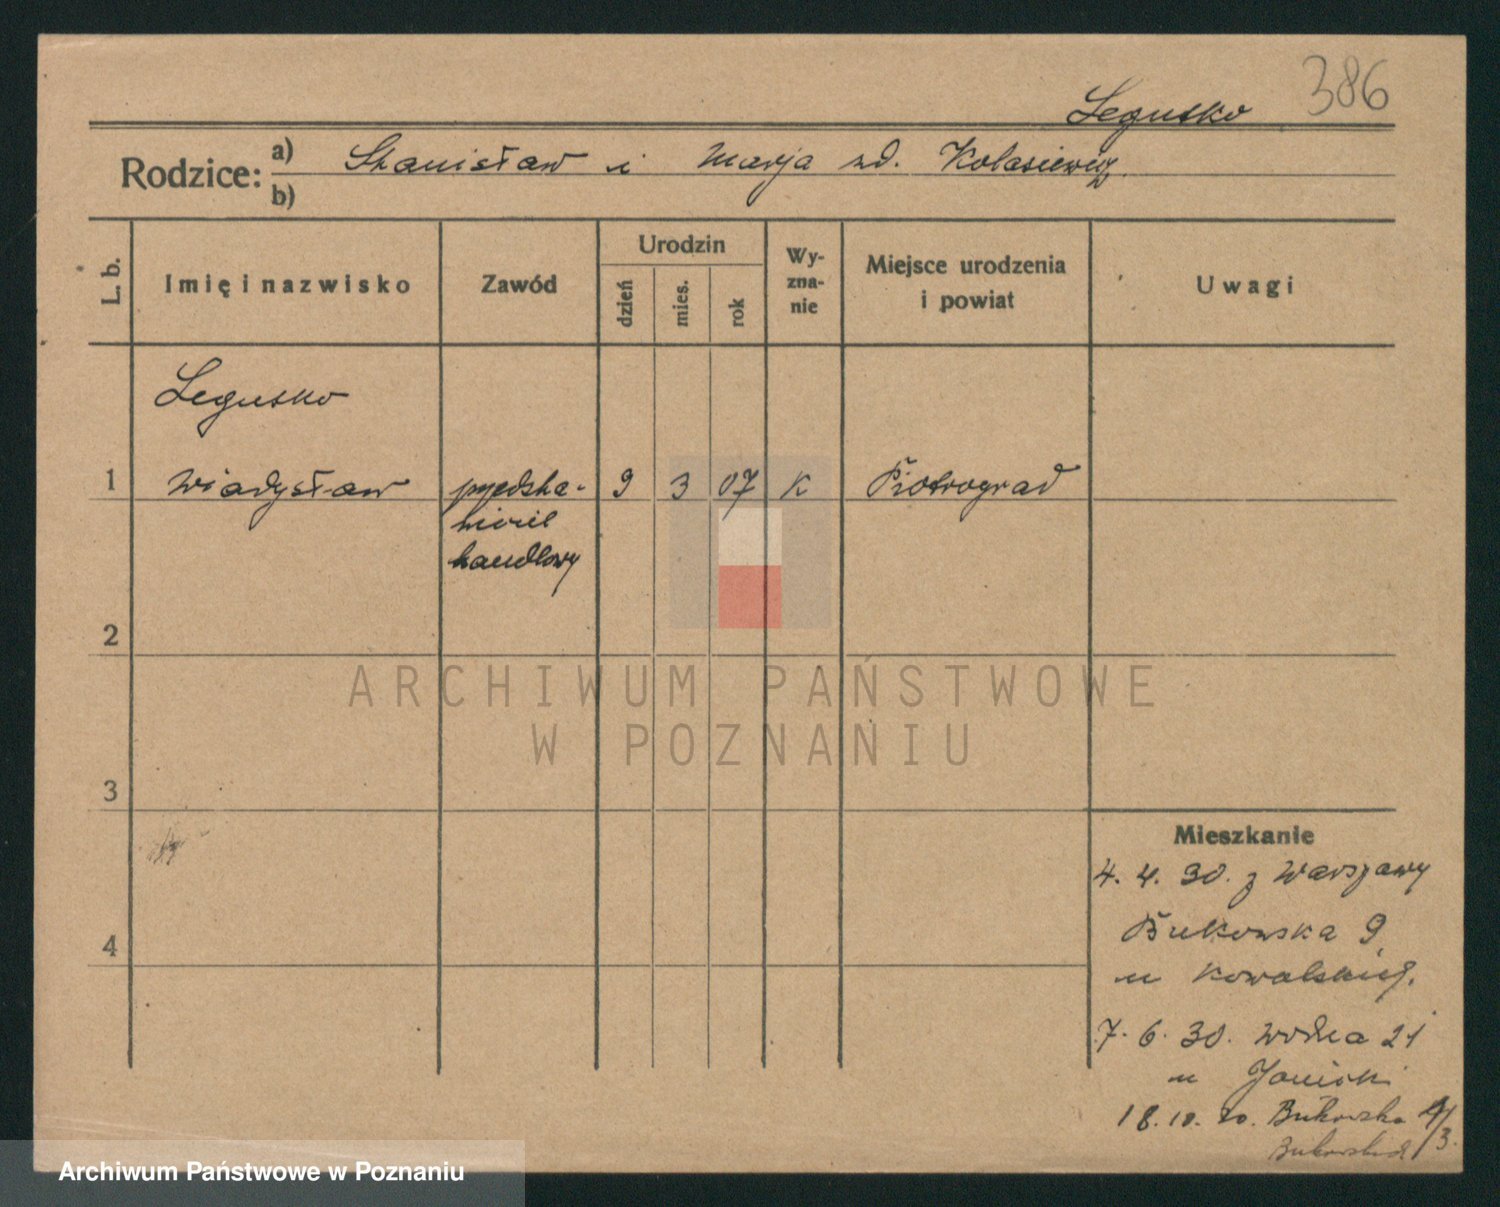 386
Legusko
Rodzice: a) Stanisław i Marja zd. Kolasiewicz
b)
L. b.
Imię i nazwisko
Zawód
Urodzin
dzień
mies.
rok
Wy-
zna-
nie
Miejsce urodzenia
i powiat
Uwagi
Legusko
1 Władysław przedsta- 9 3 07 K Piotrograd
wiciel
handlowy
2
ARCHIWUM PAŃSTWOWE
W POZNANIU
3
Mieszkanie
4. 4. 30. z Warszawy
Bukowska 9
4
u Kowalskiej.
7. 6. 30. Wodna 21
u Janicki
18. 10. 30. Bukowska 9/3.
Archiwum Państwowe w Poznaniu